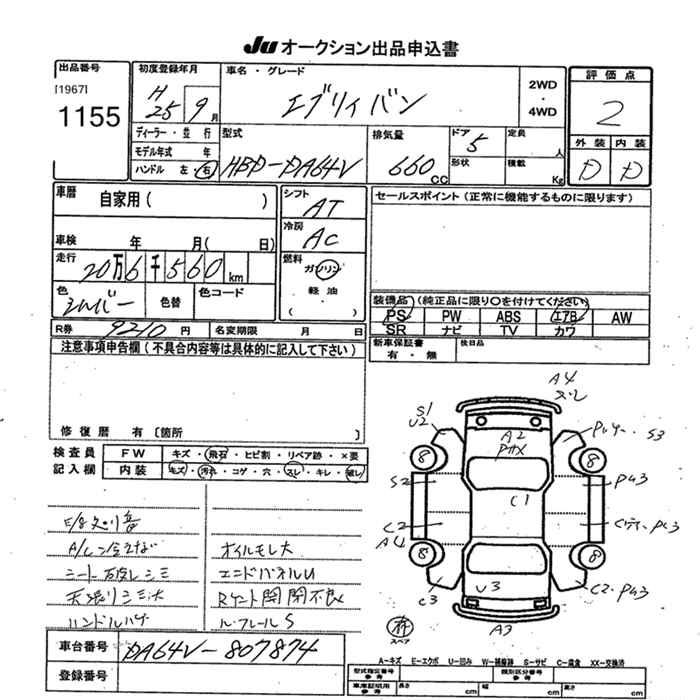 Ju オークション出品申込書
出品番号
[1967]
1155
初度登録年月
H 25 年 9月
車名・グレード
エブリィバン
2WD
・
4WD
評価点
2
ディーラー・並行
モデル年式 年
ハンドル 左・右
型式
HBD-DA64V
排気量
660 CC
ドア 5
形状
定員 人
積載 Kg
外装 内装
D D
車暦
自家用 ( )
シフト
AT
セールスポイント (正常に機能するものに限ります)
車検 年 月( 日)
冷房
AC
走行
20万6千560km
燃料
ガソリン
・
軽油
( )
色
シルバー
色替
色コード
装備品 (純正品に限り○を付けてください)
PS PW ABS エアB AW
SR ナビ TV カワ
R券 9210 円
名変期限 月 日
新車保証書
有・無
検日品
注意事項申告欄 (不具合内容等は具体的に記入して下さい)
修復歴 有 〔箇所 〕
検査員
記入欄
FW キズ・飛石・ヒビ割・リペア跡・×要
内装 キズ・汚れ・コゲ・穴・スレ・キレ・破レ
E/g 異音
A/C冷えず
シート破レシミ
天張りシミ大
ハンドルハゲ
オイルモレ大
エンドパネルU
Rゲート開閉不良
ル-フレールS
A4
ズレ
S1
U2
A2
S3
8 8
S2
C1
P43
C2
A4
8 8
C3
U3
C2. P43
A3
有
スペア
車台番号
DA64V-807874
登録番号
A-キズ E-エクボ U-凹み W-補修跡 S-サビ C-腐食 XX-交換済
型式指定番号
参考
類別区分番号
参考
車庫証明用
参考
長さ cm
幅 cm
高さ cm